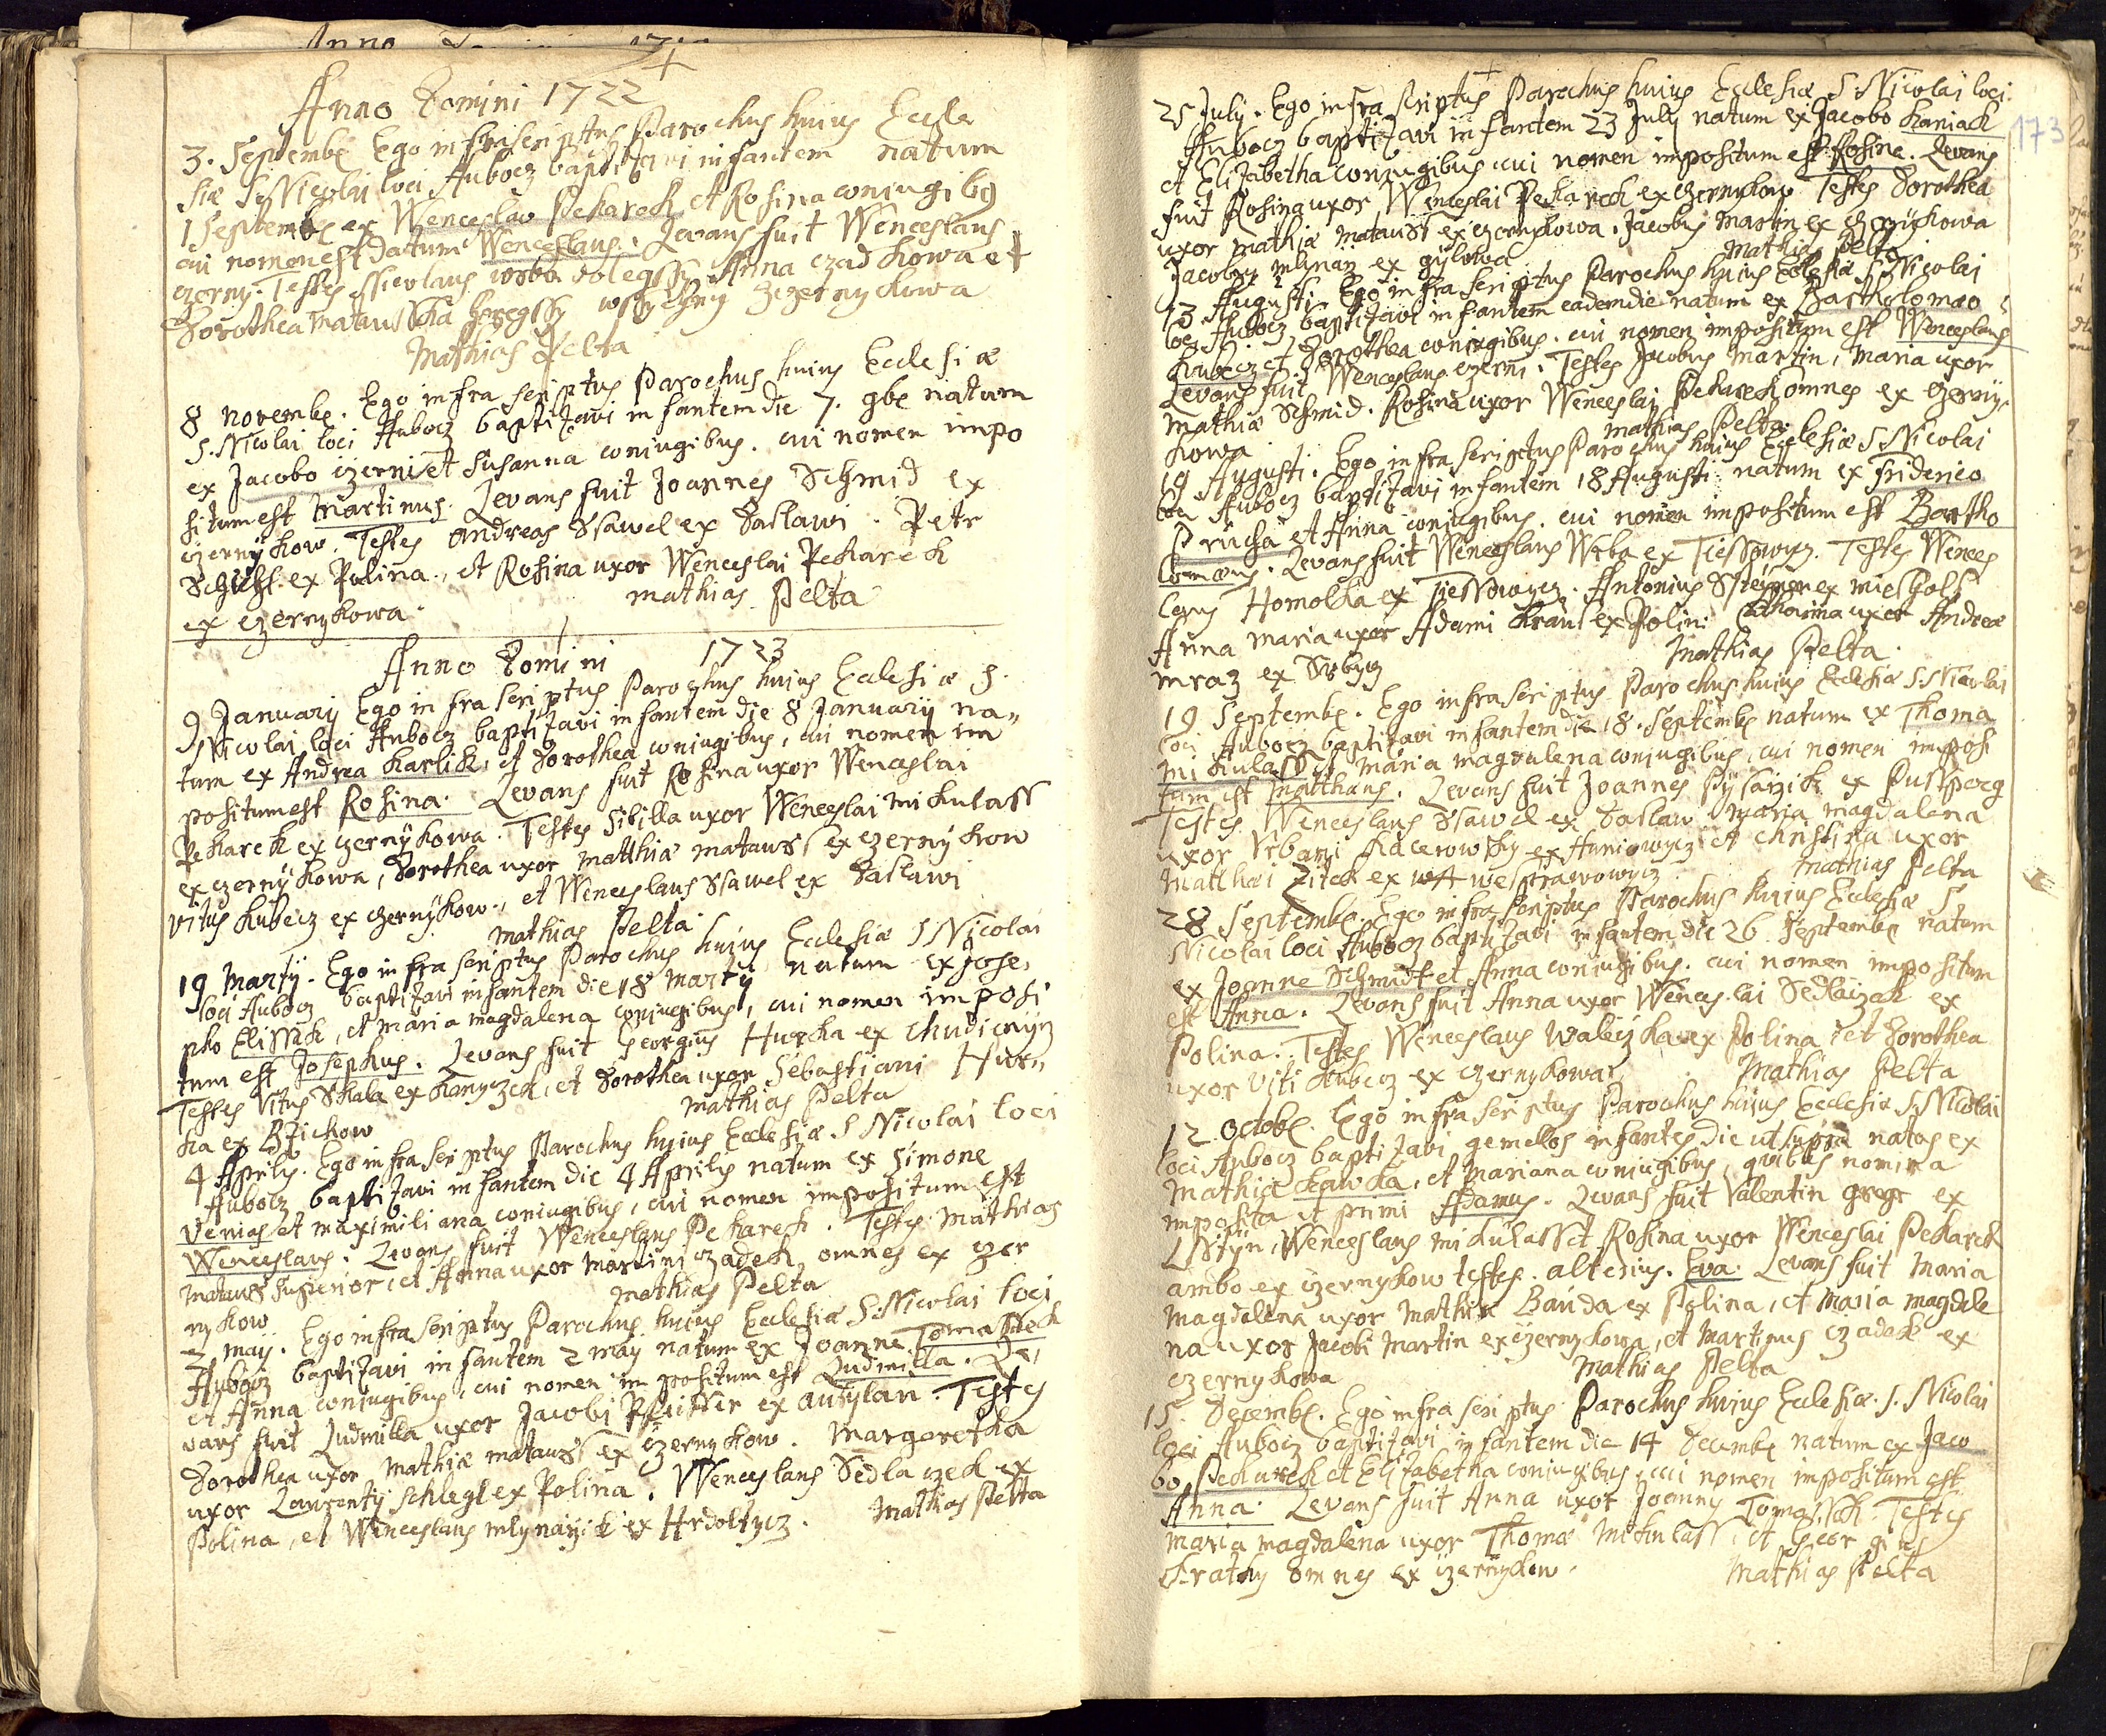 Anno Domini 1722
3. Septembr. Ego infrascriptus Parochus huius Eccle
siæ S. Nicolai loci Hubocz baptizavi infantem natum
1 Septembr ex Wenceslao Pekarek et Rosina coniugibus
cui nomen est datum Wenceslaus. Levans fuit Wenceslaus
czerny. Testes Nicolaus wrba dolegssy Anna czadkowa et
Dorothea Matausska horegssy wssyckny z czernykowa
Mathias Pelta
8 novembr. Ego infra scriptus Parochus huius Ecclesiæ
S. Nicolai loci Hubocz baptizavi infantem die 7. 9br natum
ex Jacobo czerni et Susanna coniugibus. cui nomen impo
situm est Martinus. Levans fuit Joannes Schmid ex
czernykow. Testes Andreas Ssawel ex Zaslawi. Petr
Schlegl ex Polina., et Rosina uxor Wenceslai Pekarek
ex czernykowa. Mathias Pelta
Anno Domini 1723
9 January Ego infra scriptus Parochus huius Ecclesiæ S.
Nicolai loci Hubocz baptizavi infantem die 8 January na„
tum ex Andrea Karlik, et Dorothea coniugibus, cui nomen im
positum est Rosina. Levans fuit Rosina uxor Wenceslai
Pekarek ex czernykowa. Testes Sibilla uxor Wenceslai Mikulass
ex czernykowa, Dorothea uxor Matthiæ Matauss ex czernykow
Vitus Kubecz ex czernykow., et Wenceslaus Ssawel ex Zaslawi
Mathias Pelta
19 Marty. Ego infra scriptus Parochus huius Ecclesiæ S Nicolai
loci Hubocz baptizavi infantem die 18 Marty natum ex Jose,
pho Elissak, et Maria Magdalena coniugibus, cui nomen imposi
tum est Josephus. Levans fuit Georgius Hurka ex Chudicnyz
Testes Vitus Skala ex Kanyczek, et Dorothea uxor Sebastiani Hur„
ka ex Bzickow Mathias Pelta
4 Aprilis. Ego infra scriptus Parochus huius Ecclesiæ S Nicolai loci
Hubocz baptizavi infantem die 4 Aprilis natum ex Simone
Venias et Maximiliana coniugibus, cui nomen impositum est
Wenceslaus. Levans fuit Wenceslaus Pekarek. Testes Mathias
Matauss Superior, et Anna uxor Martini Czadek, omnes ex czer
nykow Mathias Pelta
2 may. Ego infra scriptus Parochus huius Ecclesiæ S. Nicolai loci
Hubocz baptizavi infantem 2 may natum ex Joanne Tomassek
et Anna coniugibus, cui nomen impositum est Ludmilla. Le,
vans fuit Ludmilla uxor Jacobi Pfeiffer ex autylau. Testes
Dorothea uxor Mathiæ Matauss ex czernykow. Margaretha
uxor Laurenty Schlegl ex Polina. Wenceslaus Sedlaczek ex
Polina, et Wenceslaus Mlynarzik ex Hrdoltycz. Mathias Pelta
173
25 July. Ego infra scriptus Parochus huius Ecclesiæ S. Nicolai loci
Hubocz baptizavi infantem 23 July natum ex Jacobo Kaniack
et Elizabetha coniugibus cui nomen impositum est Rosina. Levans
fuit Rosina uxor Wenceslai Pekarek ex czernykow Testes Dorothea
uxor Mathiæ Matauss ex czernykowa. Jacobus Martin ex czernykowa
Jacobus Mlynarz ex gylowa Mathias Pelta
13 Augusti. Ego infra scriptus Parochus huius Ecclesiæ S Nicolai
loci Hubocz baptizavi infantem eadem die natum ex Bartholomæo
Kubecz et Dorothea coniugibus. cui nomen impositum est Wenceslaus
Levans fuit Wenceslaus czerni. Testes Jacobus Martin, Maria uxor
Mathiæ Schmid. Rosina uxor Wenceslai Pekarek omnes ex czerny„
kowa Mathias Pelta
19 Augusti. Ego infra scriptus Parochus huius Ecclesiæ S Nicolai
loci Hubocz baptizavi infantem 18 Augusti natum ex Friderico
Prucha et Anna coniugibus. cui nomen impositum est Bartho
lomæus. Levans fuit Wenceslaus Wrba ex Tiessowycz. Testes Wences
laus Homolka ex Tiessowycz. Antonius Ssteigner ex Mieholup
Anna Maria uxor Adami Kraus ex Polin. Catharina uxor Andreæ
Mraz ex Srbycz Mathias Pelta.
19 Septembr. Ego infra scriptus Parochus huius Ecclesiæ S. Nicolai
loci Hubocz baptizavi infantem die 18. Septembr natum ex Thoma
Mikulass et Maria Magdalena coniugibus, cui nomen imposi
tum est Matthæus. Levans fuit Joannes Pysarzik ex Pussperg
Testes Wenceslaus Ssawel ex Zaslaw Maria Magdalena
uxor Vrbani Kacerowsky ex Huniowycz et Christina uxor
Matthæi Zitek ex wesprawowycz. Mathias Pelta
28 Septembr. Ego infra scriptus Parochus huius Ecclesiæ S
Nicolai loci Hubocz baptizavi infantem die 26 Septembr natum
ex Joanne Schmidt et Anna coniugibus. cui nomen impositum
est Anna. Levans fuit Anna uxor Wenceslai Sedlaczek ex
Polina. Testes Wenceslaus Waliczka ex Polina, et Dorothea
uxor Viti Kubecz ex czernykowa. Mathias Pelta
12 Octobr. Ego infra scriptus Parochus huius Ecclesiæ S. Nicolai
loci Hubocz baptizavi gemellos infantes die ut supra natos ex
Mathia Kawka, et Mariana coniugibus, quibus nomina
imposita et primi Adamus. Levans fuit Valentin gregr ex
Lstyn, Wenceslaus Mikulass et Rosina uxor Wenceslai Pekarek
ambo ex czernykow testes. alterius. Eva. Levans fuit Maria
Magdalena uxor Mathiæ Bauda ex Polina, et Maria Magdale
na uxor Jacobi Martin ex czernykowa, et Martinus czadek ex
czernykowa Mathias Pelta
15. Decembr. Ego infra scriptus Parochus huius Ecclesiæ. S. Nicolai
loci Hubocz baptizavi infantem die 14 Decembr natum ex Jaco
bo Pekarek et Elizabetha coniugibus, cui nomen impositum est
Anna. Levans fuit Anna uxor Joanny Tomassek. Testes
Maria Magdalena uxor Thomæ Mikulass, et Georgius
Kratky omnes ex czernykow. Mathias Pelta